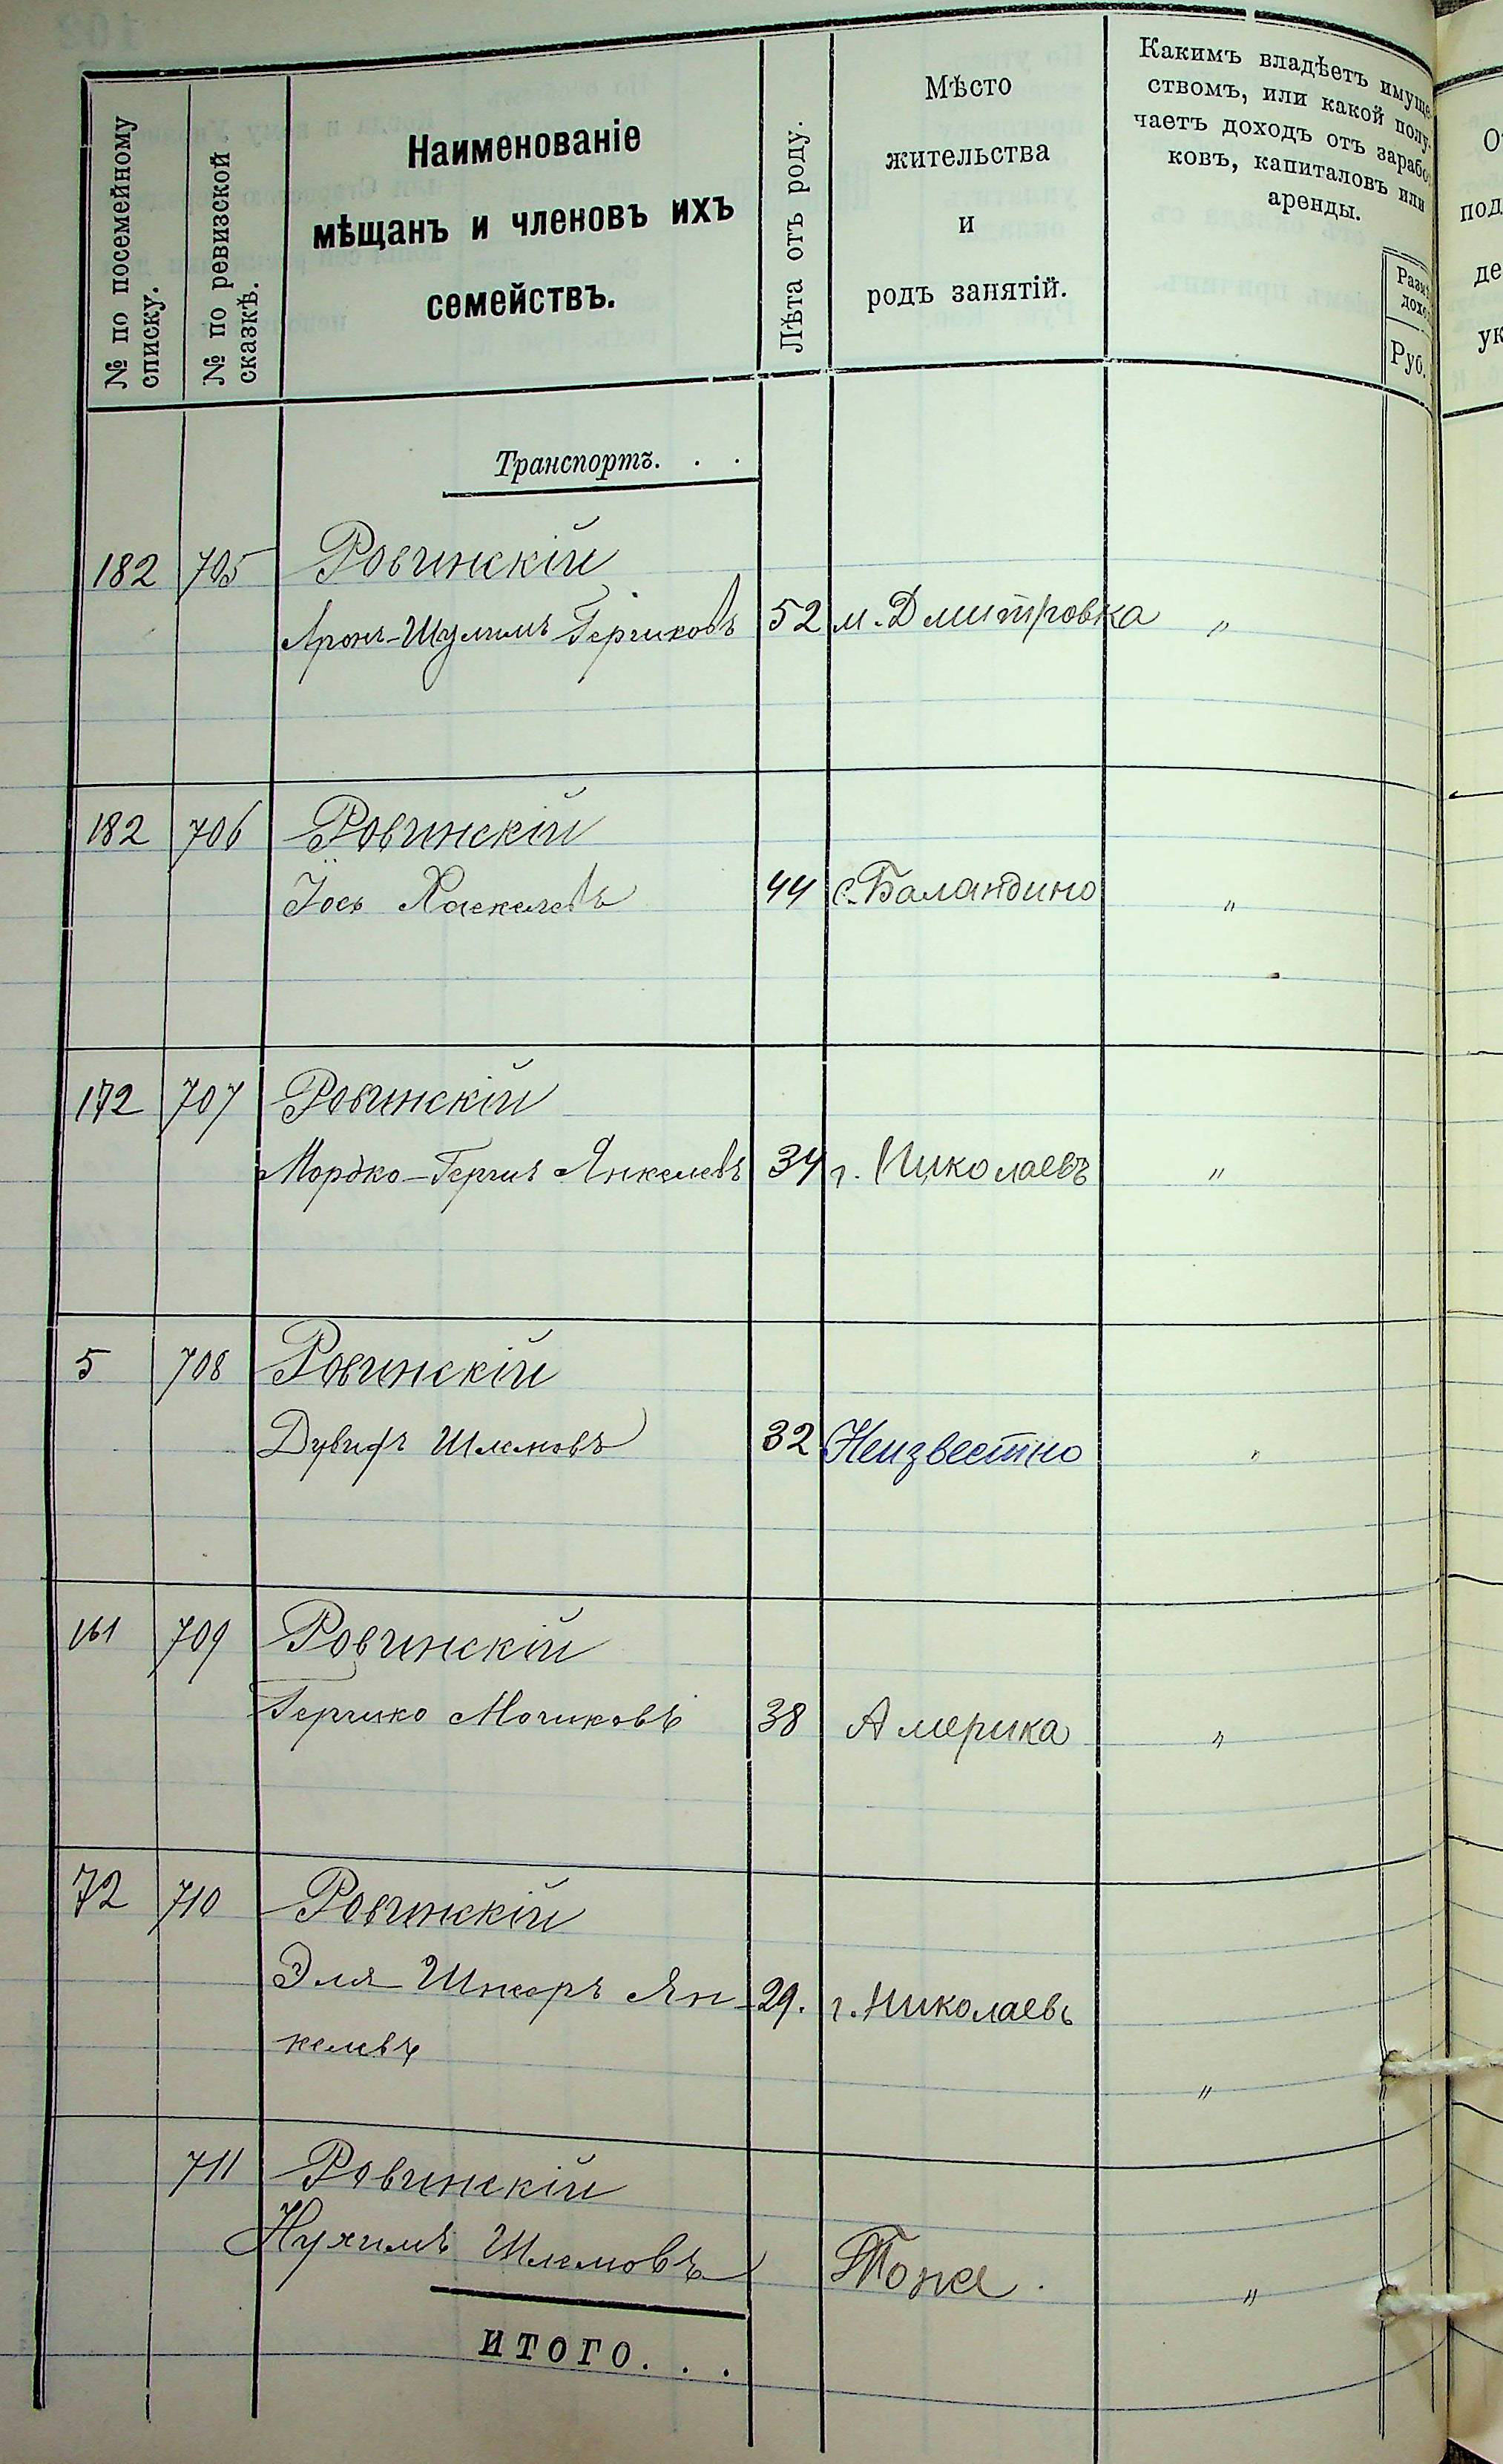 № по посемейному
списку.
№ по ревизской
сказкѣ.
Наименованіе
мѣщанъ и членовъ ихъ
семействъ.
Лѣта отъ роду.
Мѣсто
жительства
и
родъ занятій.
Какимъ владѣетъ имуще-
ствомъ, или какой полу-
чаетъ доходъ отъ зарабо
ковъ, капиталовъ или
аренды.
Руб.
Транспортъ. . .
182 705 Ровинскій
Аронъ-Шулимъ Гершковъ 52 м. Дмитровка "
182 706 Ровинскій
Іось Хаскелевъ 44 с. Баландино "
172 707 Ровинскій
Мордко-Гершъ Янкелевъ 34 г. Николаевъ "
5 708 Ровинскій
Дувидъ Шлемовъ 32 Неизвестно "
161 709 Ровинскій
Гершко Мошковъ 38 Америка "
72 710 Ровинскій
Эля Шнеоръ Ян- 29. г. Николаевъ
келевъ "
711 Ровинскій
Нухимъ Шлемовъ "
ИТОГО. . .